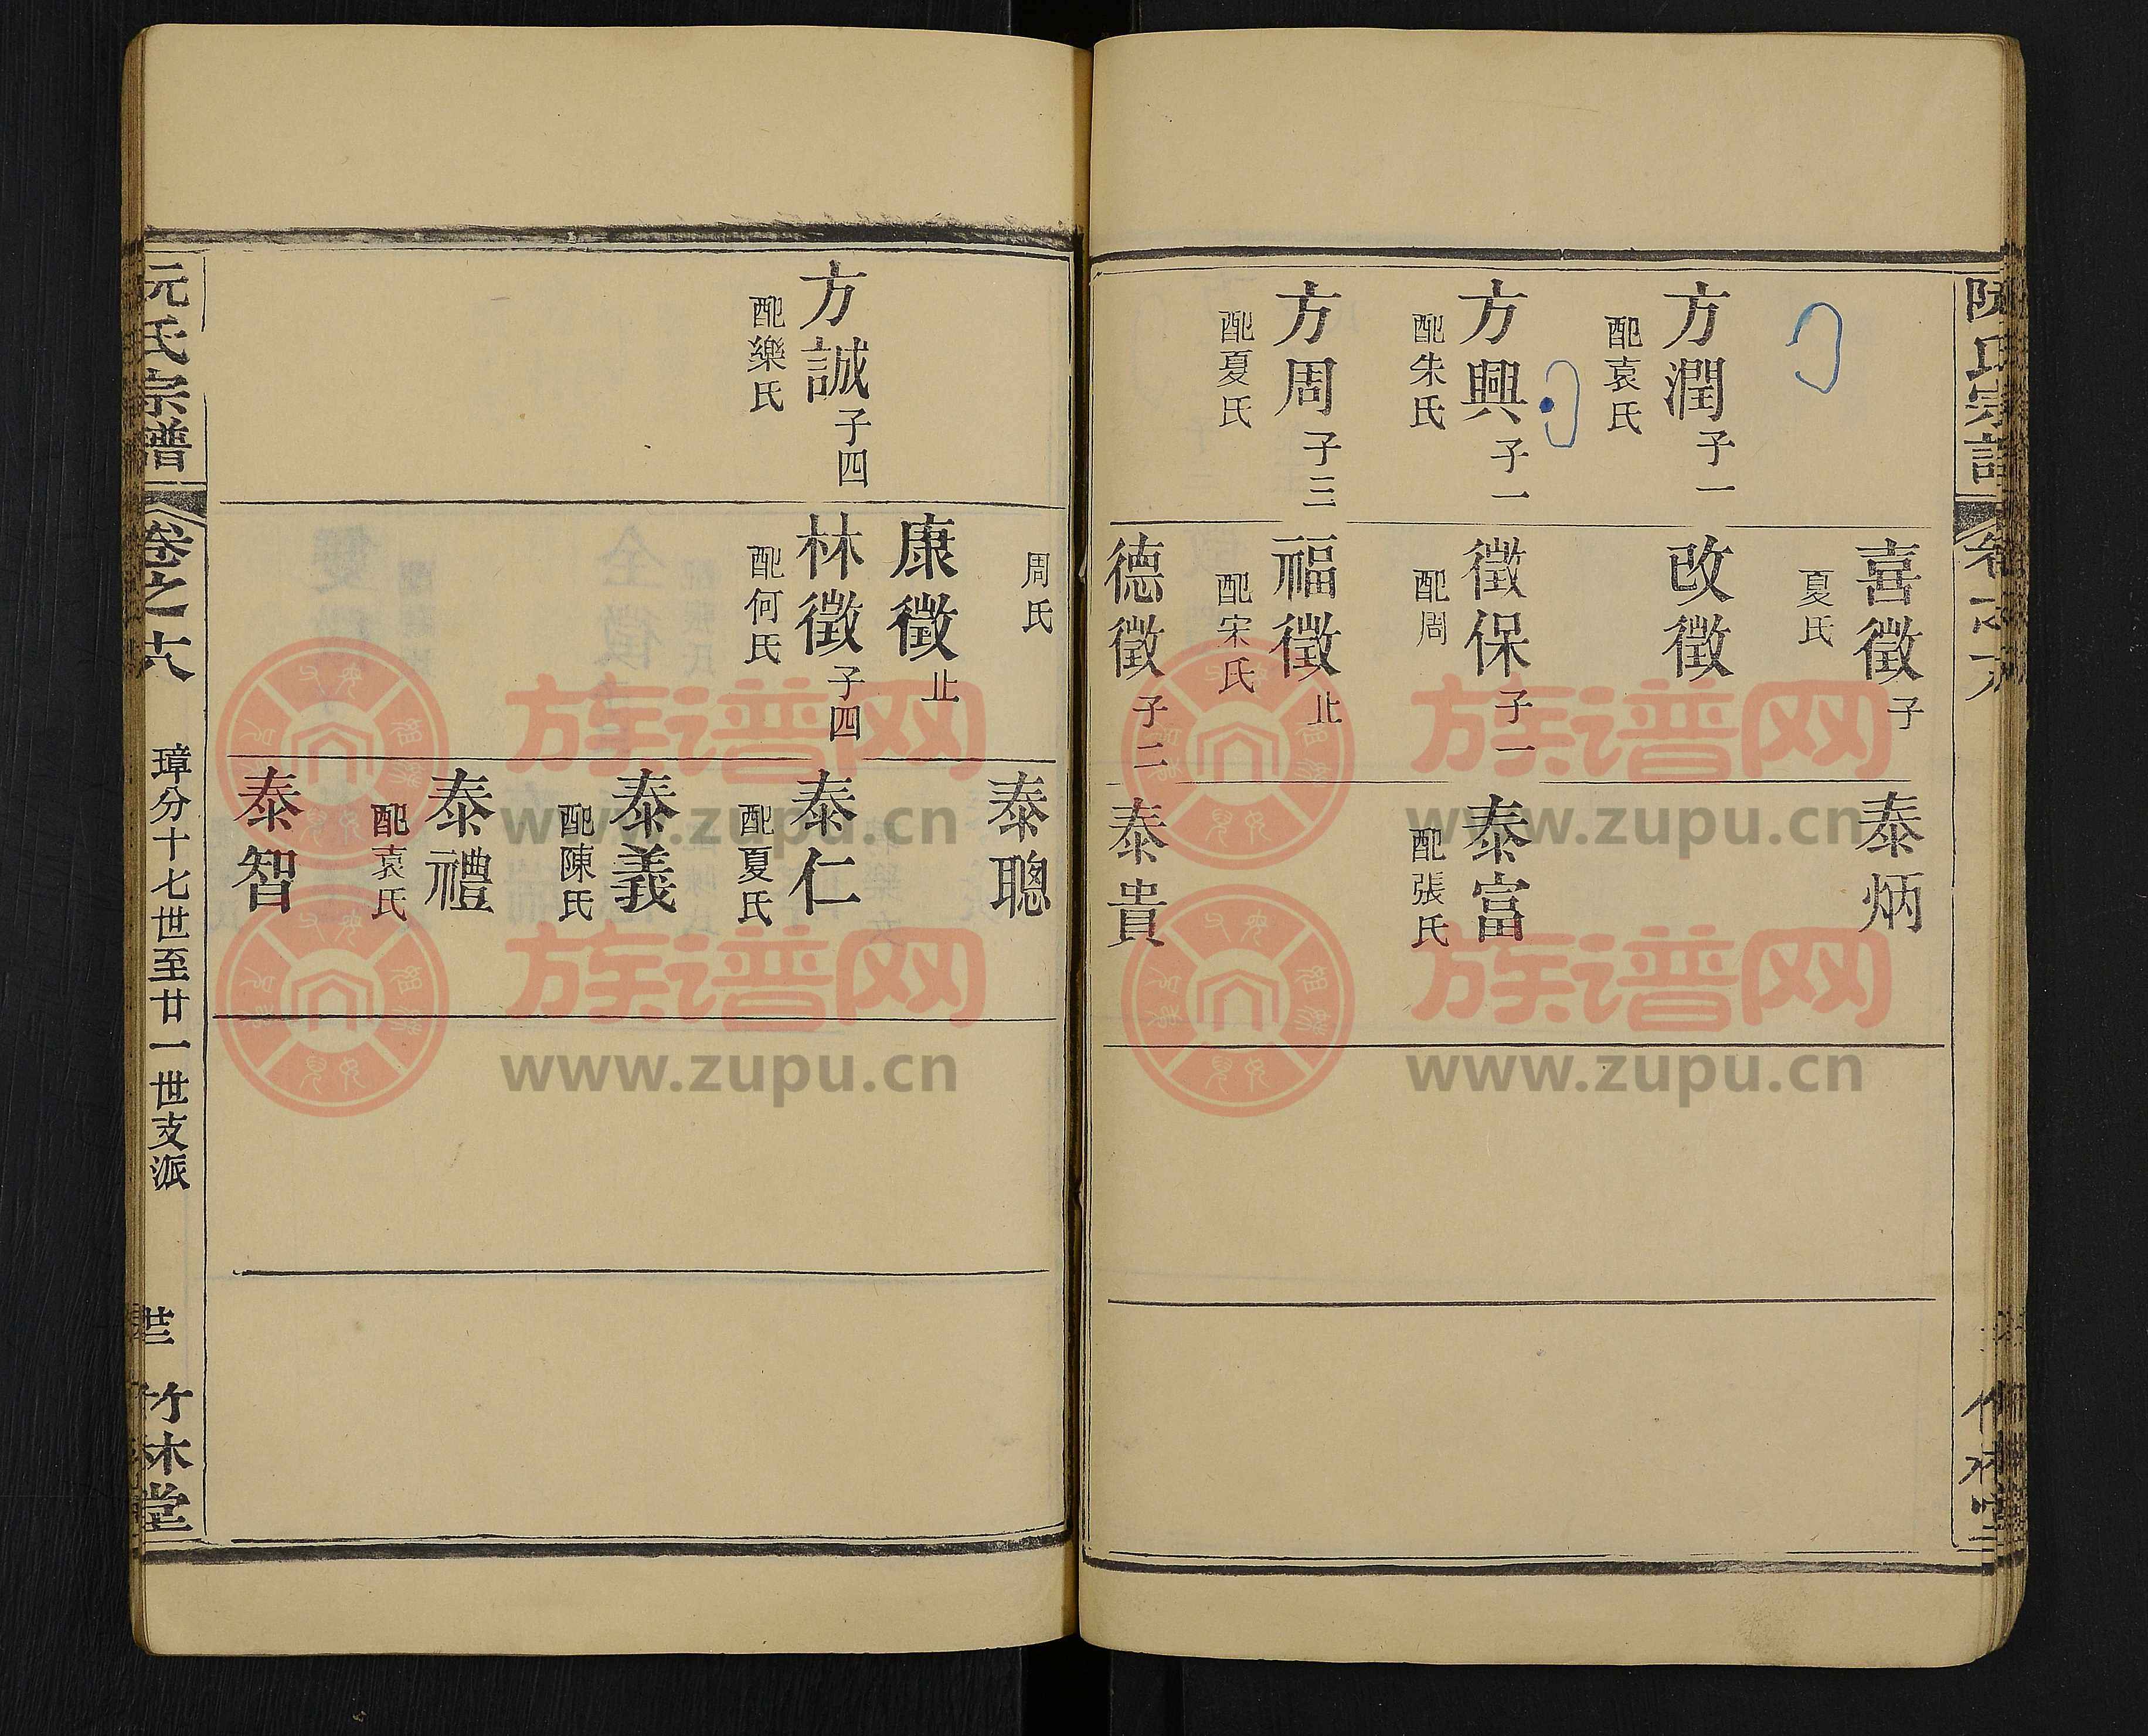 方潤 子一
配袁氏
方興 子一
配朱氏
方周 子三
配夏氏
喜徵 子
夏氏
改徵
徵保 子一
配周
福徵 止
配宋氏
德徵 子二
泰炳
泰富
配張氏
泰貴
方誠 子四
配樂氏
周氏
康徵 止
林徵 子四
配何氏
泰聰
泰仁
配夏氏
泰義
配陳氏
泰禮
配袁氏
泰智
阮氏宗譜
卷之十六
璋分十七世至廿一世支派
竹林堂
族谱网
www.zupu.cn
族谱网
www.zupu.cn
族谱网
www.zupu.cn
族谱网
www.zupu.cn